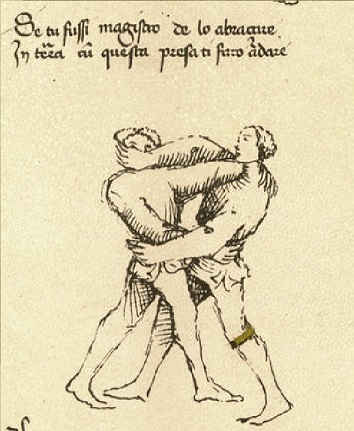 Se tu fussi magistro de lo abraçare
In tera cū questa presa ti farò ādare